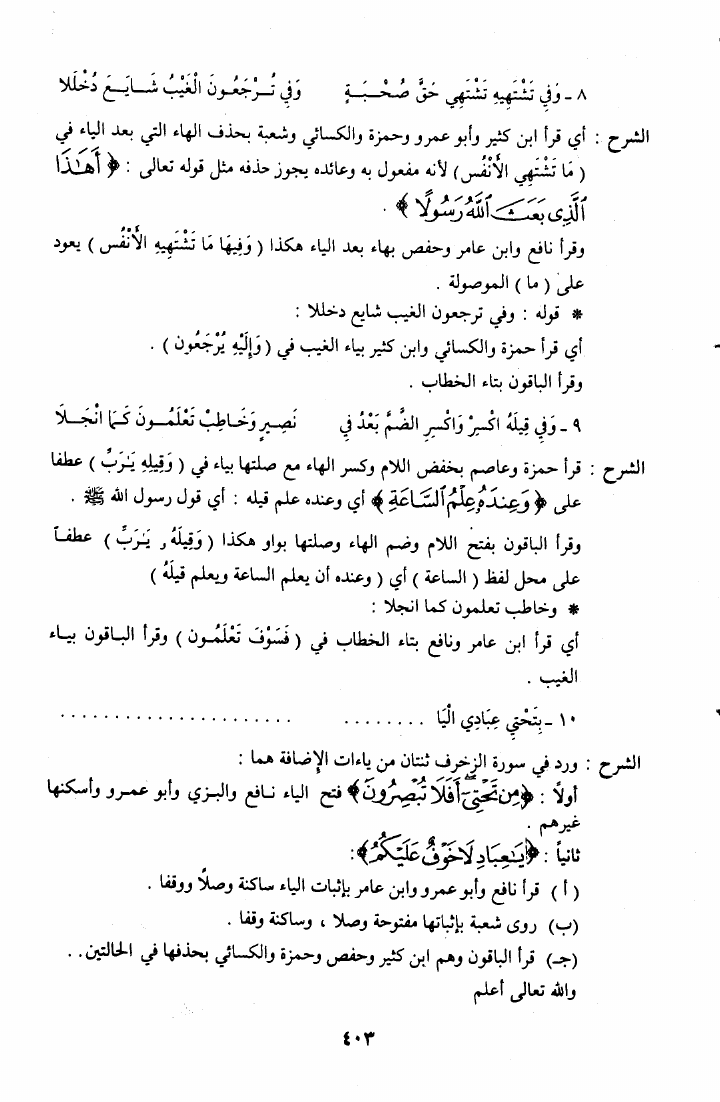 ٨ - وَفِي تَشْتَهِيهِ تَشْتَهِي حَقُّ صُحْبَةٍ وَفِي تُرْجَعُونَ الْغَيْبُ شَايَعَ دُخْلَلا
الشرح : أي قرأ ابن كثير وأبو عمرو وحمزة والكسائي وشعبة بحذف الهاء التي بعد الياء في
( مَا تَشْتَهِي الأَنْفُس ) لأنه مفعول به وعائده يجوز حذفه مثل قوله تعالى : ﴿ أَهَٰذَا
ٱلَّذِى بَعَثَ ٱللَّهُ رَسُولًا ﴾ .
وقرأ نافع وابن عامر وحفص بهاء بعد الياء هكذا ( وَفِيهَا مَا تَشْتَهِيهِ الأَنْفُس ) يعود
على ( ما ) الموصولة .
* قوله : وفي ترجعون الغيب شايع دخللا :
أي قرأ حمزة والكسائي وابن كثير بياء الغيب في ( وَإِلَيْهِ يُرْجَعُون ) .
وقرأ الباقون بتاء الخطاب .
٩ - وَفِي قِيلَهُ اكْسِرْ وَاكْسِرِ الضَّمَّ بَعْدُ فِي نَصِيرٍ وَخَاطِبْ تَعْلَمُونَ كَمَا انْجَلَا
الشرح : قرأ حمزة وعاصم بخفض اللام وكسر الهاء مع صلتها بياء في ( وَقِيلِهِ يَٰرَبِّ ) عطفا
على ﴿ وَعِندَهُۥ عِلْمُ ٱلسَّاعَةِ ﴾ أي وعنده علم قيله : أي قول رسول الله ﷺ .
وقرأ الباقون بفتح اللام وضم الهاء وصلتها بواو هكذا ( وَقِيلَهُۥ يَٰرَبِّ ) عطفاً
على محل لفظ ( الساعة ) أي ( وعنده أن يعلم الساعة ويعلم قيلَهُ )
* وخاطب تعلمون كما انجلا :
أي قرأ ابن عامر ونافع بتاء الخطاب في ( فَسَوْفَ تَعْلَمُون ) وقرأ الباقون بياء
الغيب .
١٠ - بِتَحْتِي عِبَادِي الْيَا . . . . . . . . . . . . . . . . . . . . . . . . . . . . .
الشرح : ورد في سورة الزخرف ثنتان من ياءات الإضافة هما :
أولاً : ﴿ مِن تَحْتِىٓ أَفَلَا تُبْصِرُونَ ﴾ فتح الياء نافع والبزي وأبو عمرو وأسكنها
غيرهم .
ثانياً : ﴿ يَٰعِبَادِ لَا خَوْفٌ عَلَيْكُمُ ﴾ :
( أ ) قرأ نافع وأبو عمرو وابن عامر بإثبات الياء ساكنة وصلاً ووقفا .
(ب) روى شعبة بإثباتها مفتوحة وصلا ، وساكنة وقفا .
(جـ) قرأ الباقون وهم ابن كثير وحفص وحمزة والكسائي بحذفها في الحالتين . .
والله تعالى أعلم
٤٠٣